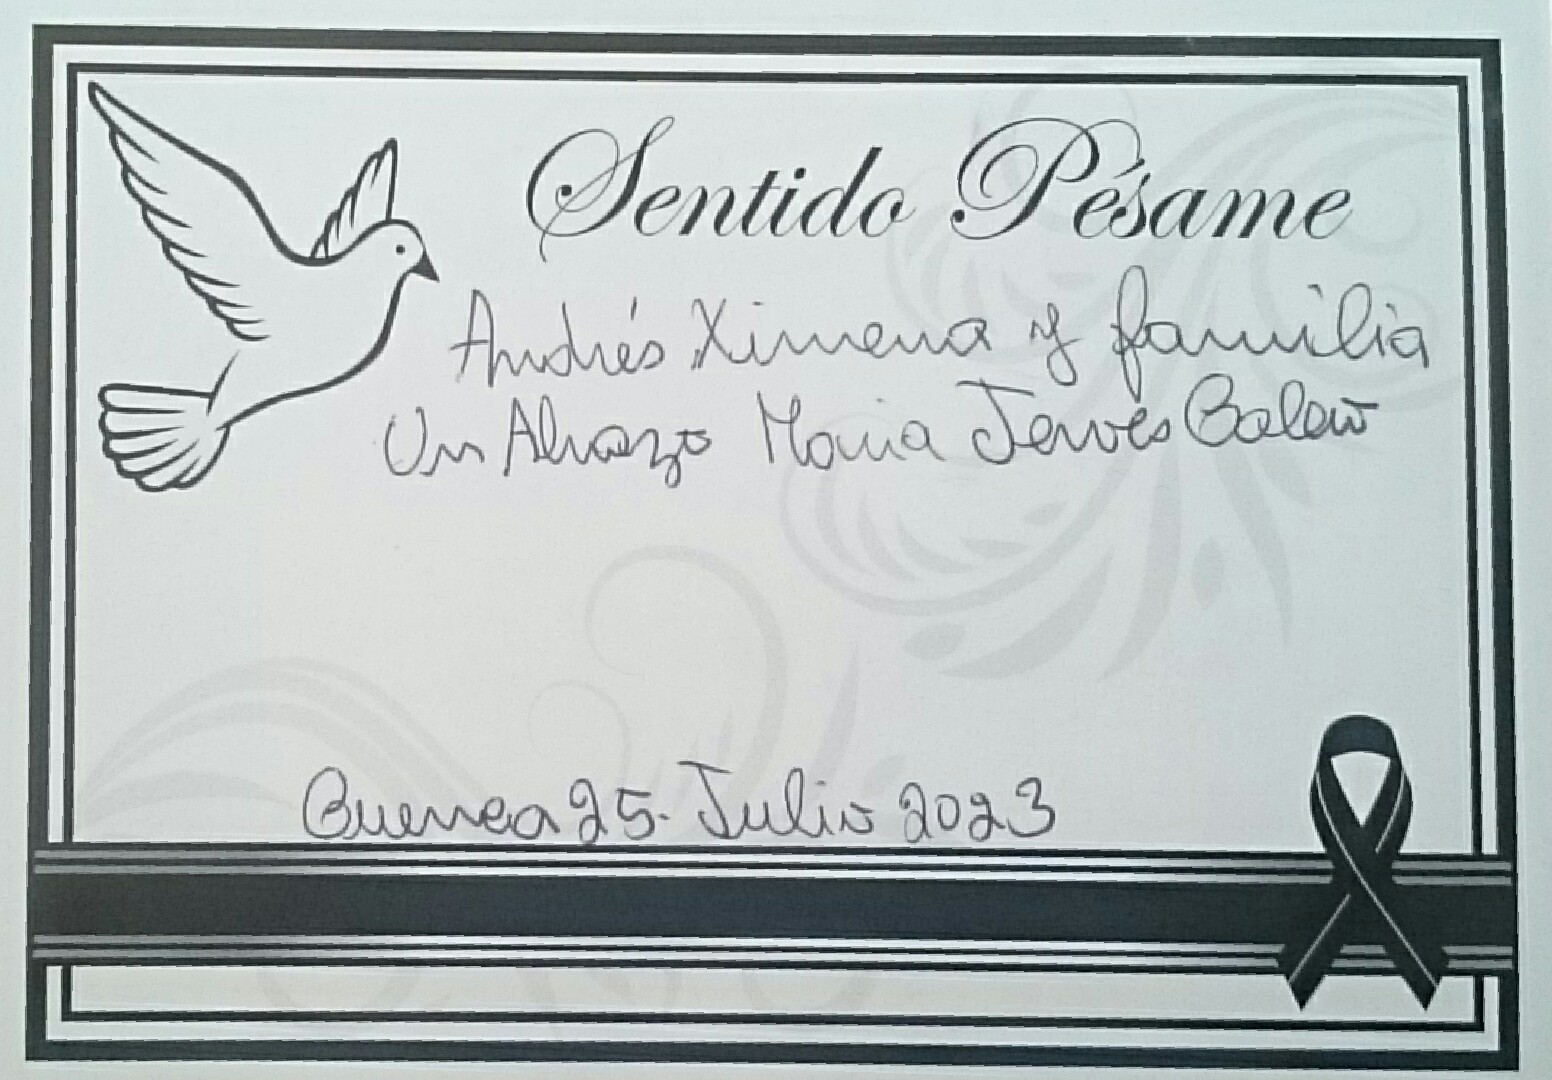 Sentido Pésame
Andrés Ximena y familia
Un Abrazo Maria Jerves
Cuenca 25. Julio 2023